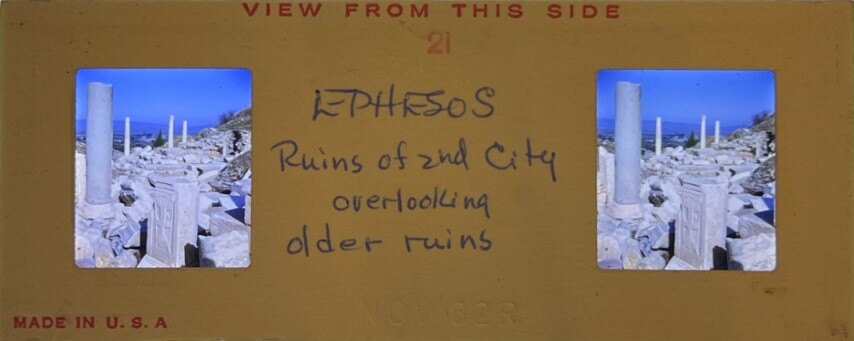 VIEW FROM THIS SIDE
21
EPHESOS
Ruins of 2nd City
overlooking
older ruins
NOV 62R
MADE IN U.S.A